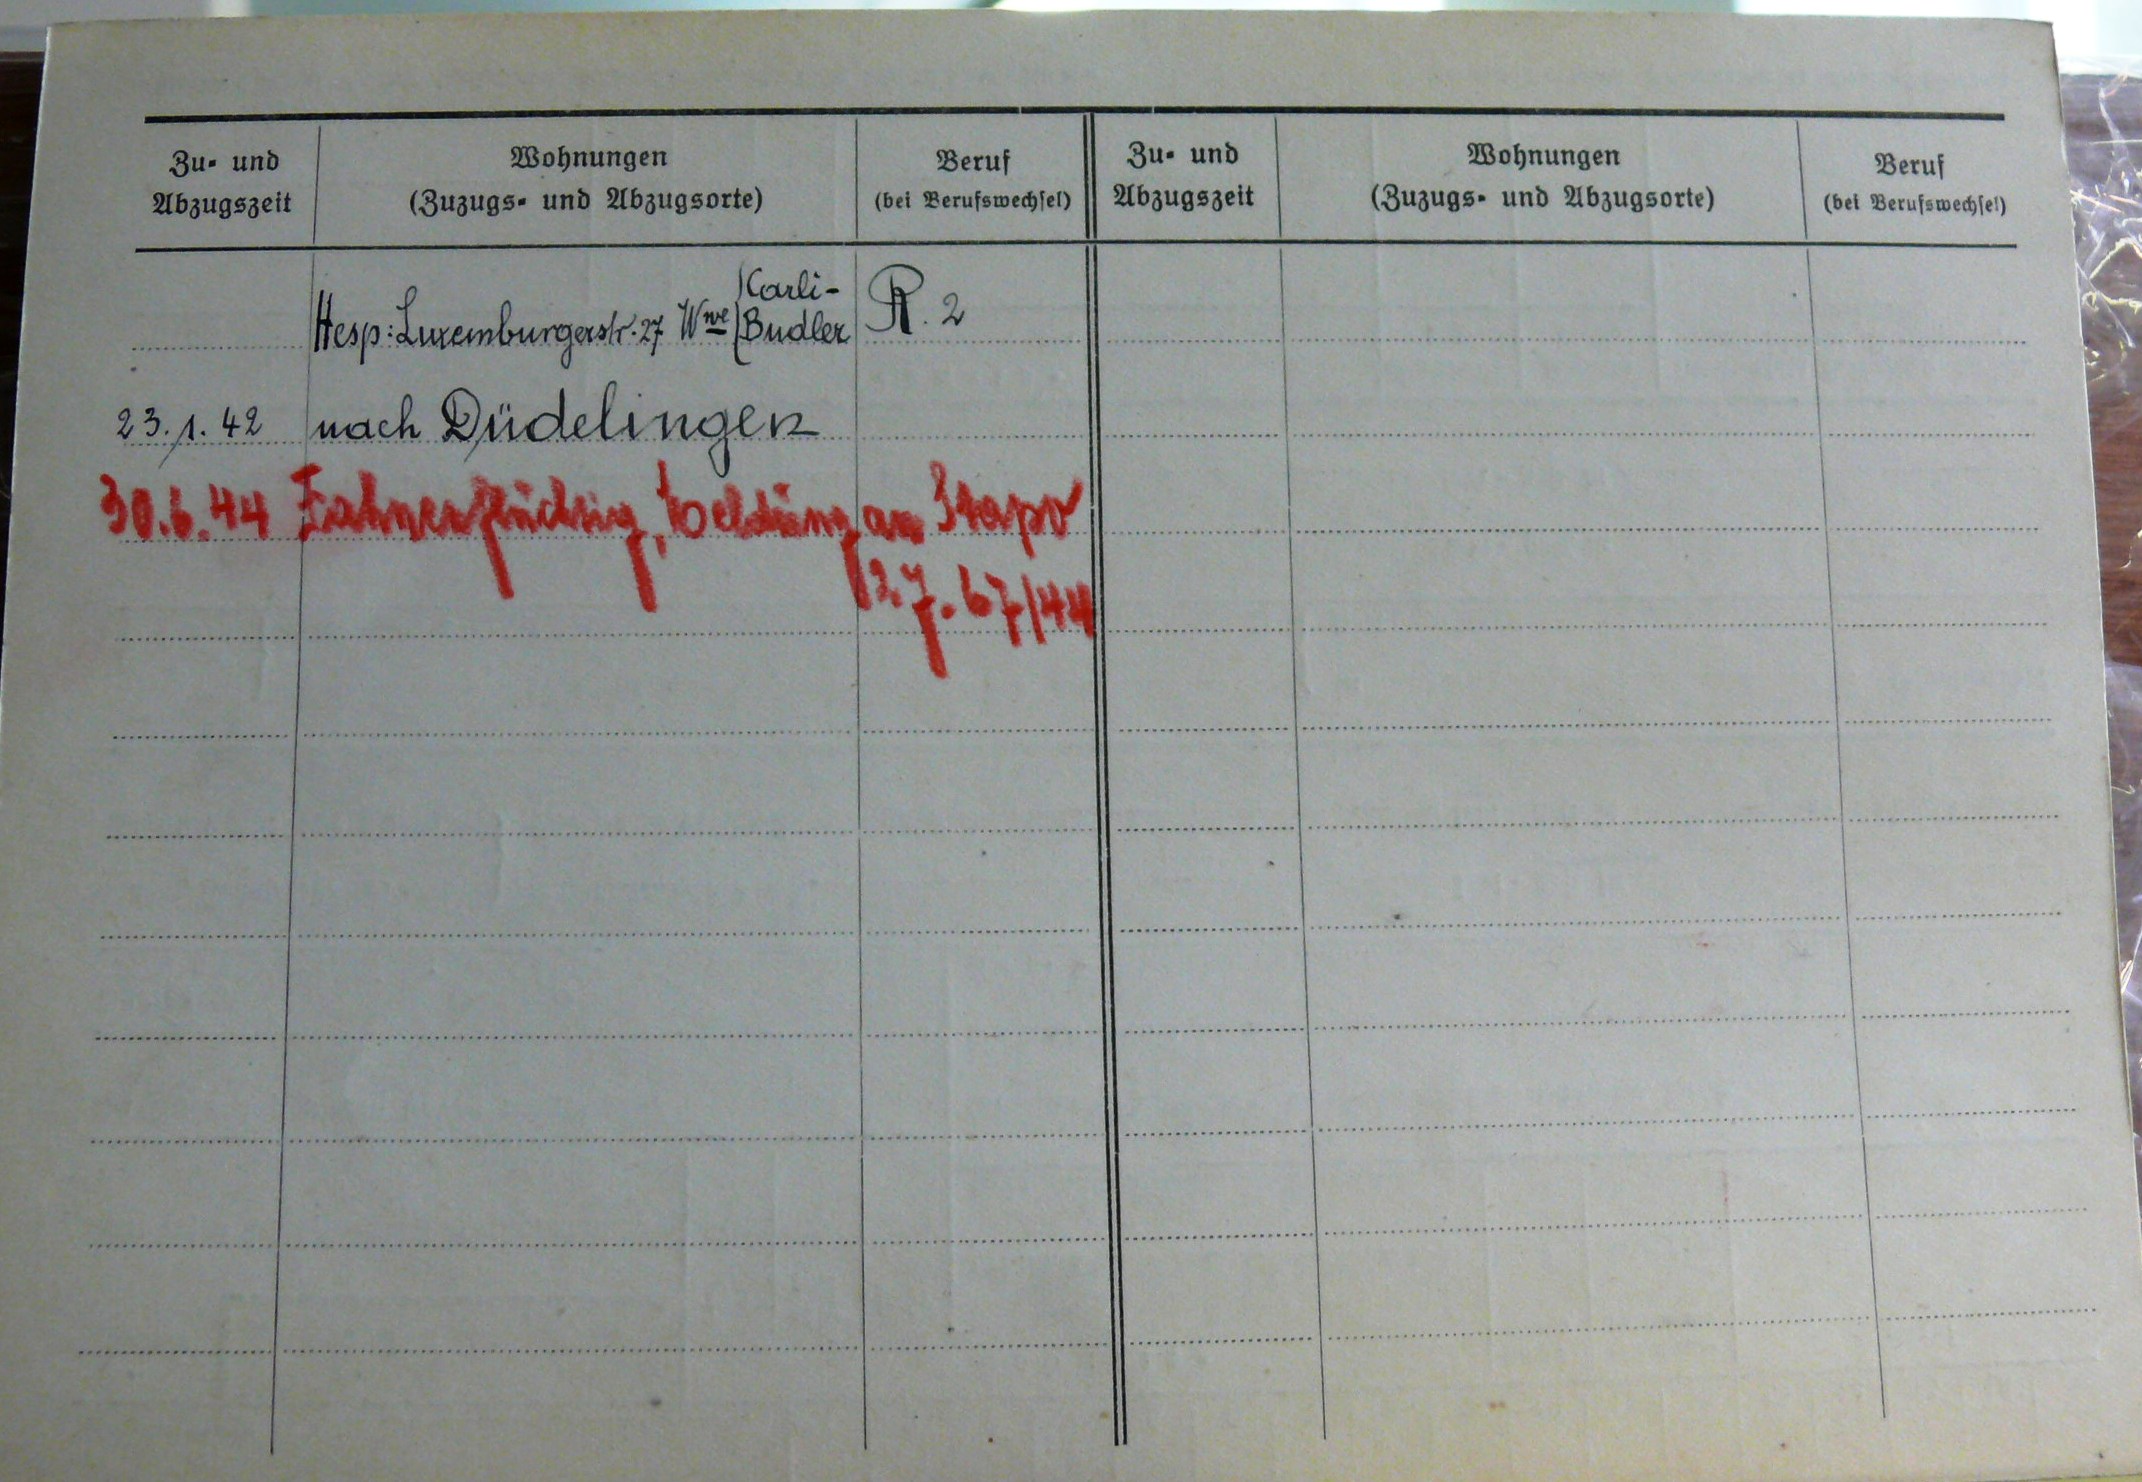 Zu- und
Abzugszeit
Wohnungen
(Zuzugs- und Abzugsorte)
Beruf
(bei Berufswechsel)
Zu- und
Abzugszeit
Wohnungen
(Zuzugs- und Abzugsorte)
Beruf
(bei Berufswechsel)
Karli-
Hesp: Luxemburgerstr. 27 Wwe Budler R. 2
23.1.42 nach Düdelingen
30.6.44 Fahnenflüchtig, Meldung an Stapo
12.7.67/44